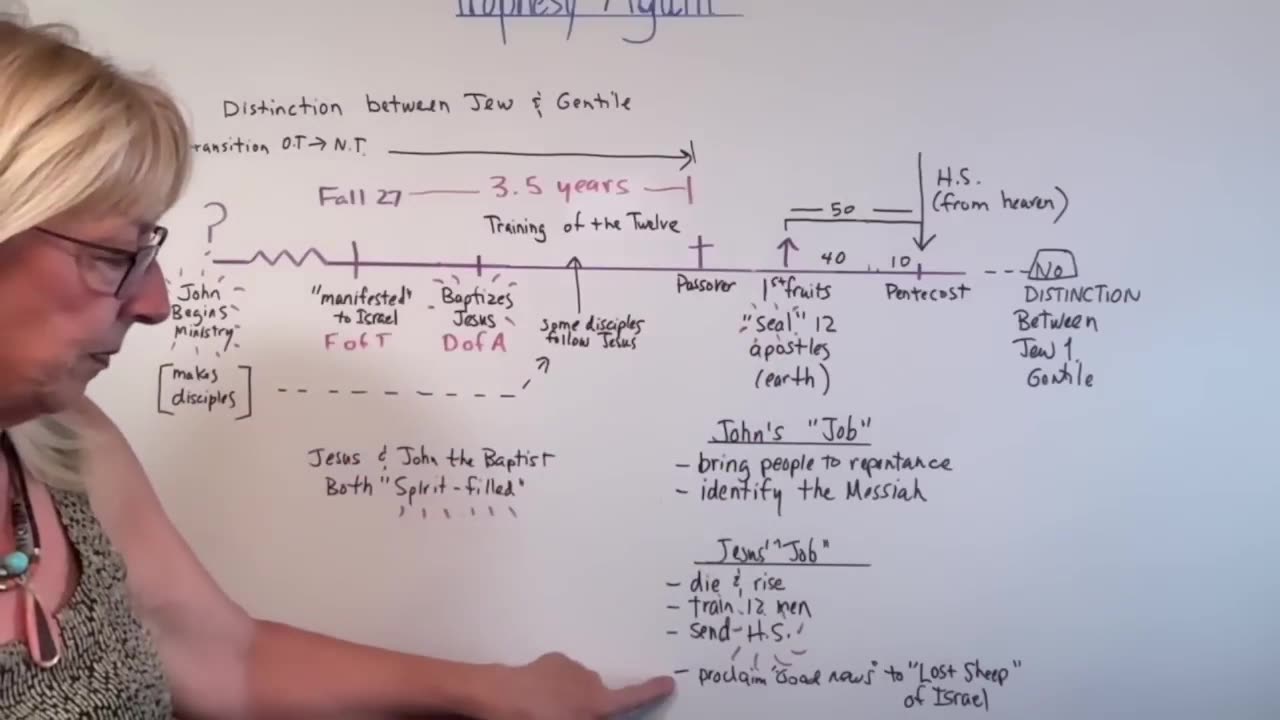 Prophesy Again
Distinction between Jew & Gentile
ransition O.T → N.T.
Fall 27 — 3.5 years —
Training of the Twelve
?
H.S.
(from heaven)
50
40
10
John
Begins
Ministry
[makes
disciples]
"manifested"
to Israel
F of T
Baptizes
Jesus
D of A
Some disciples
follow Jesus
Passover
1st fruits
"Seal" 12
apostles
(earth)
Pentecost
No
DISTINCTION
Between
Jew &
Gentile
Jesus & John the Baptist
Both "Spirit-filled"
John's "Job"
- bring people to repentance
- identify the Messiah
Jesus' "Job"
- die & rise
- train 12 men
- send H.S.
- proclaim "Good news" to "Lost Sheep"
of Israel